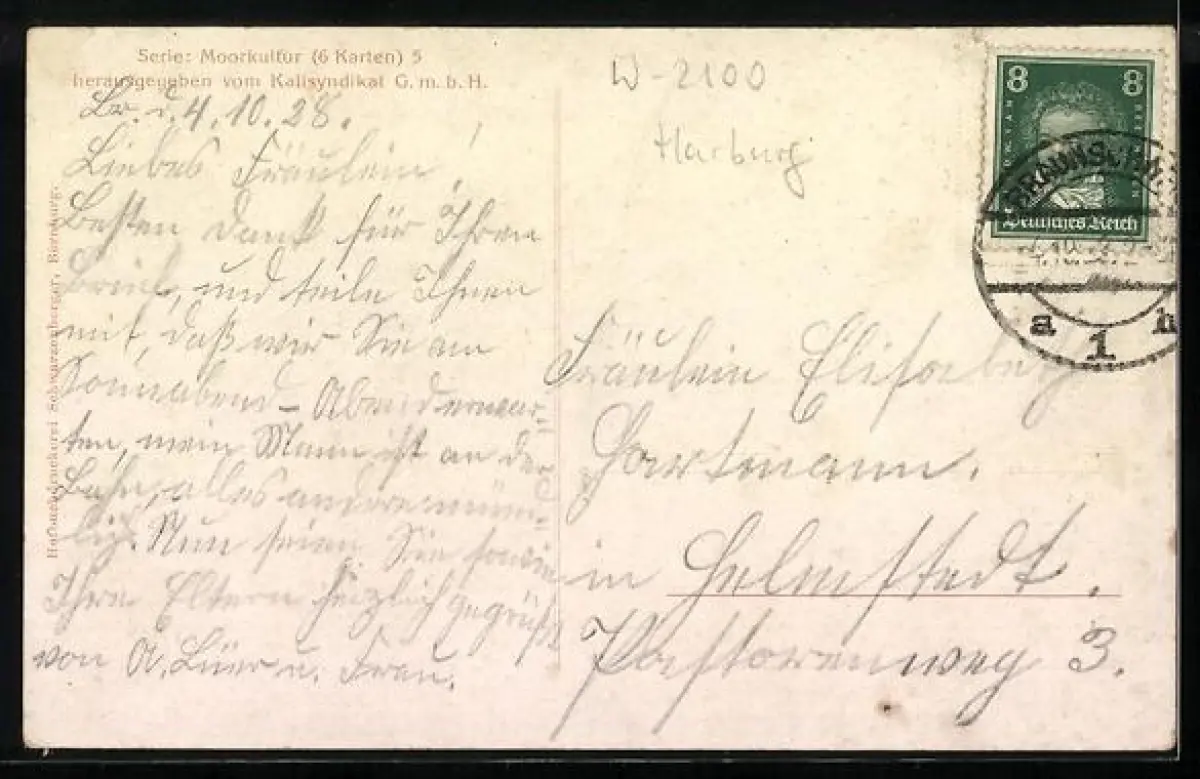 Serie: Moorkultur (6 Karten) 5
herausgegeben vom Kalisyndikat G. m. b. H.
Br. d. 4.10.28.
Liebes Fräulein!
Besten Dank für Ihren
Brief, und teile Ihnen
mit, daß wir Sie am
Sonnabend-Abend erwar=
ten, mein Mann ist an der
Bahn, alles andere münd=
lich. Nun seien Sie sowie
Ihre Eltern herzlich gegrüßt
von A. Lüer u. Frau.
Hofbuchdruckerei Schwarzenberger, Bernburg.
W-2100
Harburg
8 8
Deutsches Reich
BRAUNSCHW
a 1 h
Fräulein Elisabeth
Hartmann.
in Helmstedt.
Pastorenweg 3.